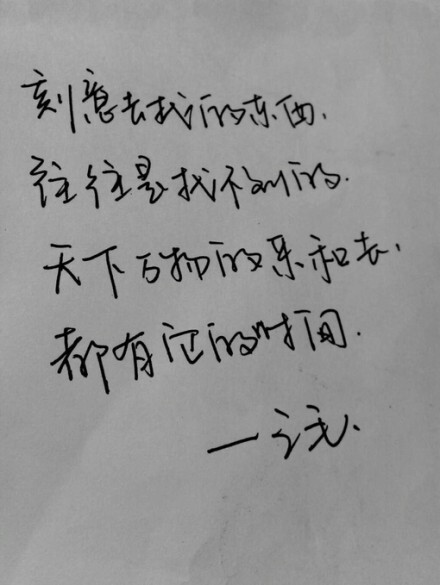 刻意去找的东西.
往往是找不到的.
天下万物的来和去.
都有它的时间.
一之无.